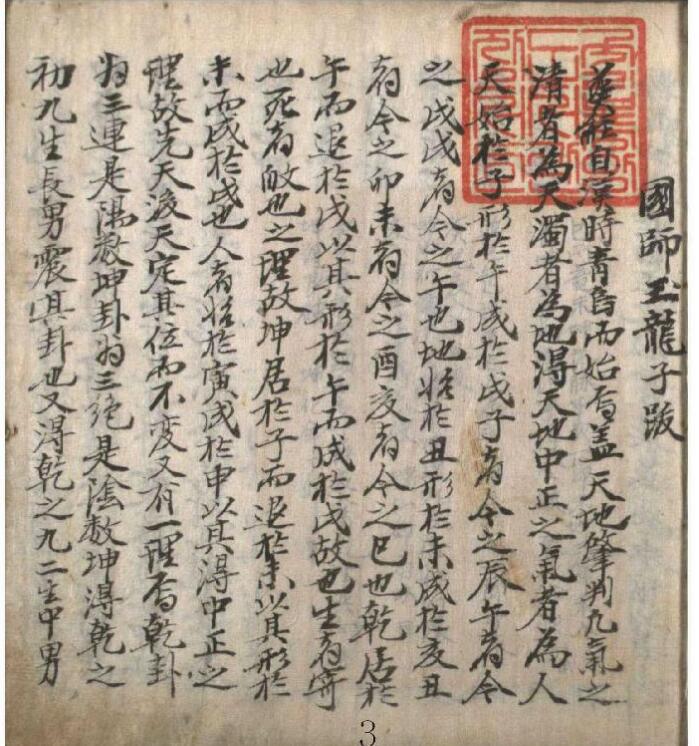 國師玉龍子跋
葬在自漢時靑烏而始焉盖天地肇判九氣之
清者為天濁者為地淂天地中正之氣者為人
天始於子形於午成於戌子者今之辰午者今
之戌戌者今之午也地始於丑形於未成於亥丑
者今之卯未者今之酉亥者今之巳也乾居於
午而退於戌以其形於午而成於戌故也生者寄
也死者也之理故坤居於子而退於未以其形於
未而成於戌也人者始於寅成於申以其淂中正之
理故先天後天定其位而不变又有一理焉乾卦
為三連是陽数坤卦為三絶是陰数坤淂乾之
初九生長男震其卦也又淂乾之九二生中男
3